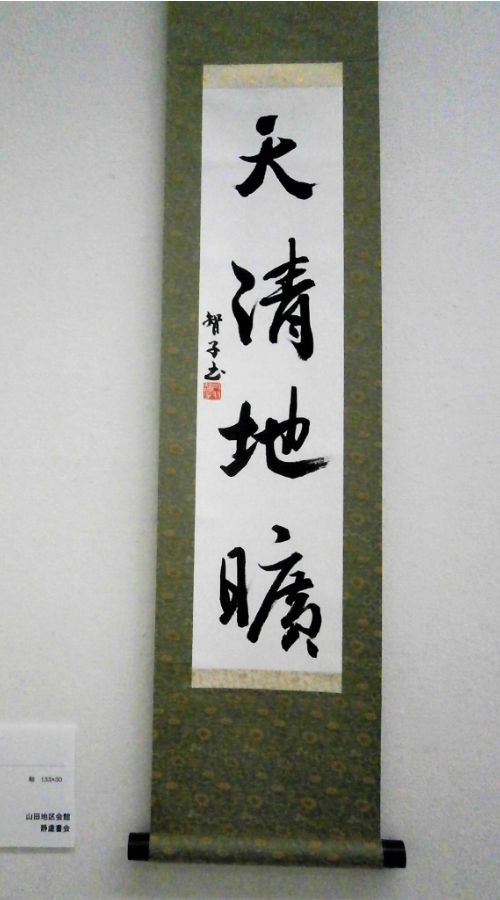 天清地曠
智子書
軸 133×30
山田地区会館
静虚書会